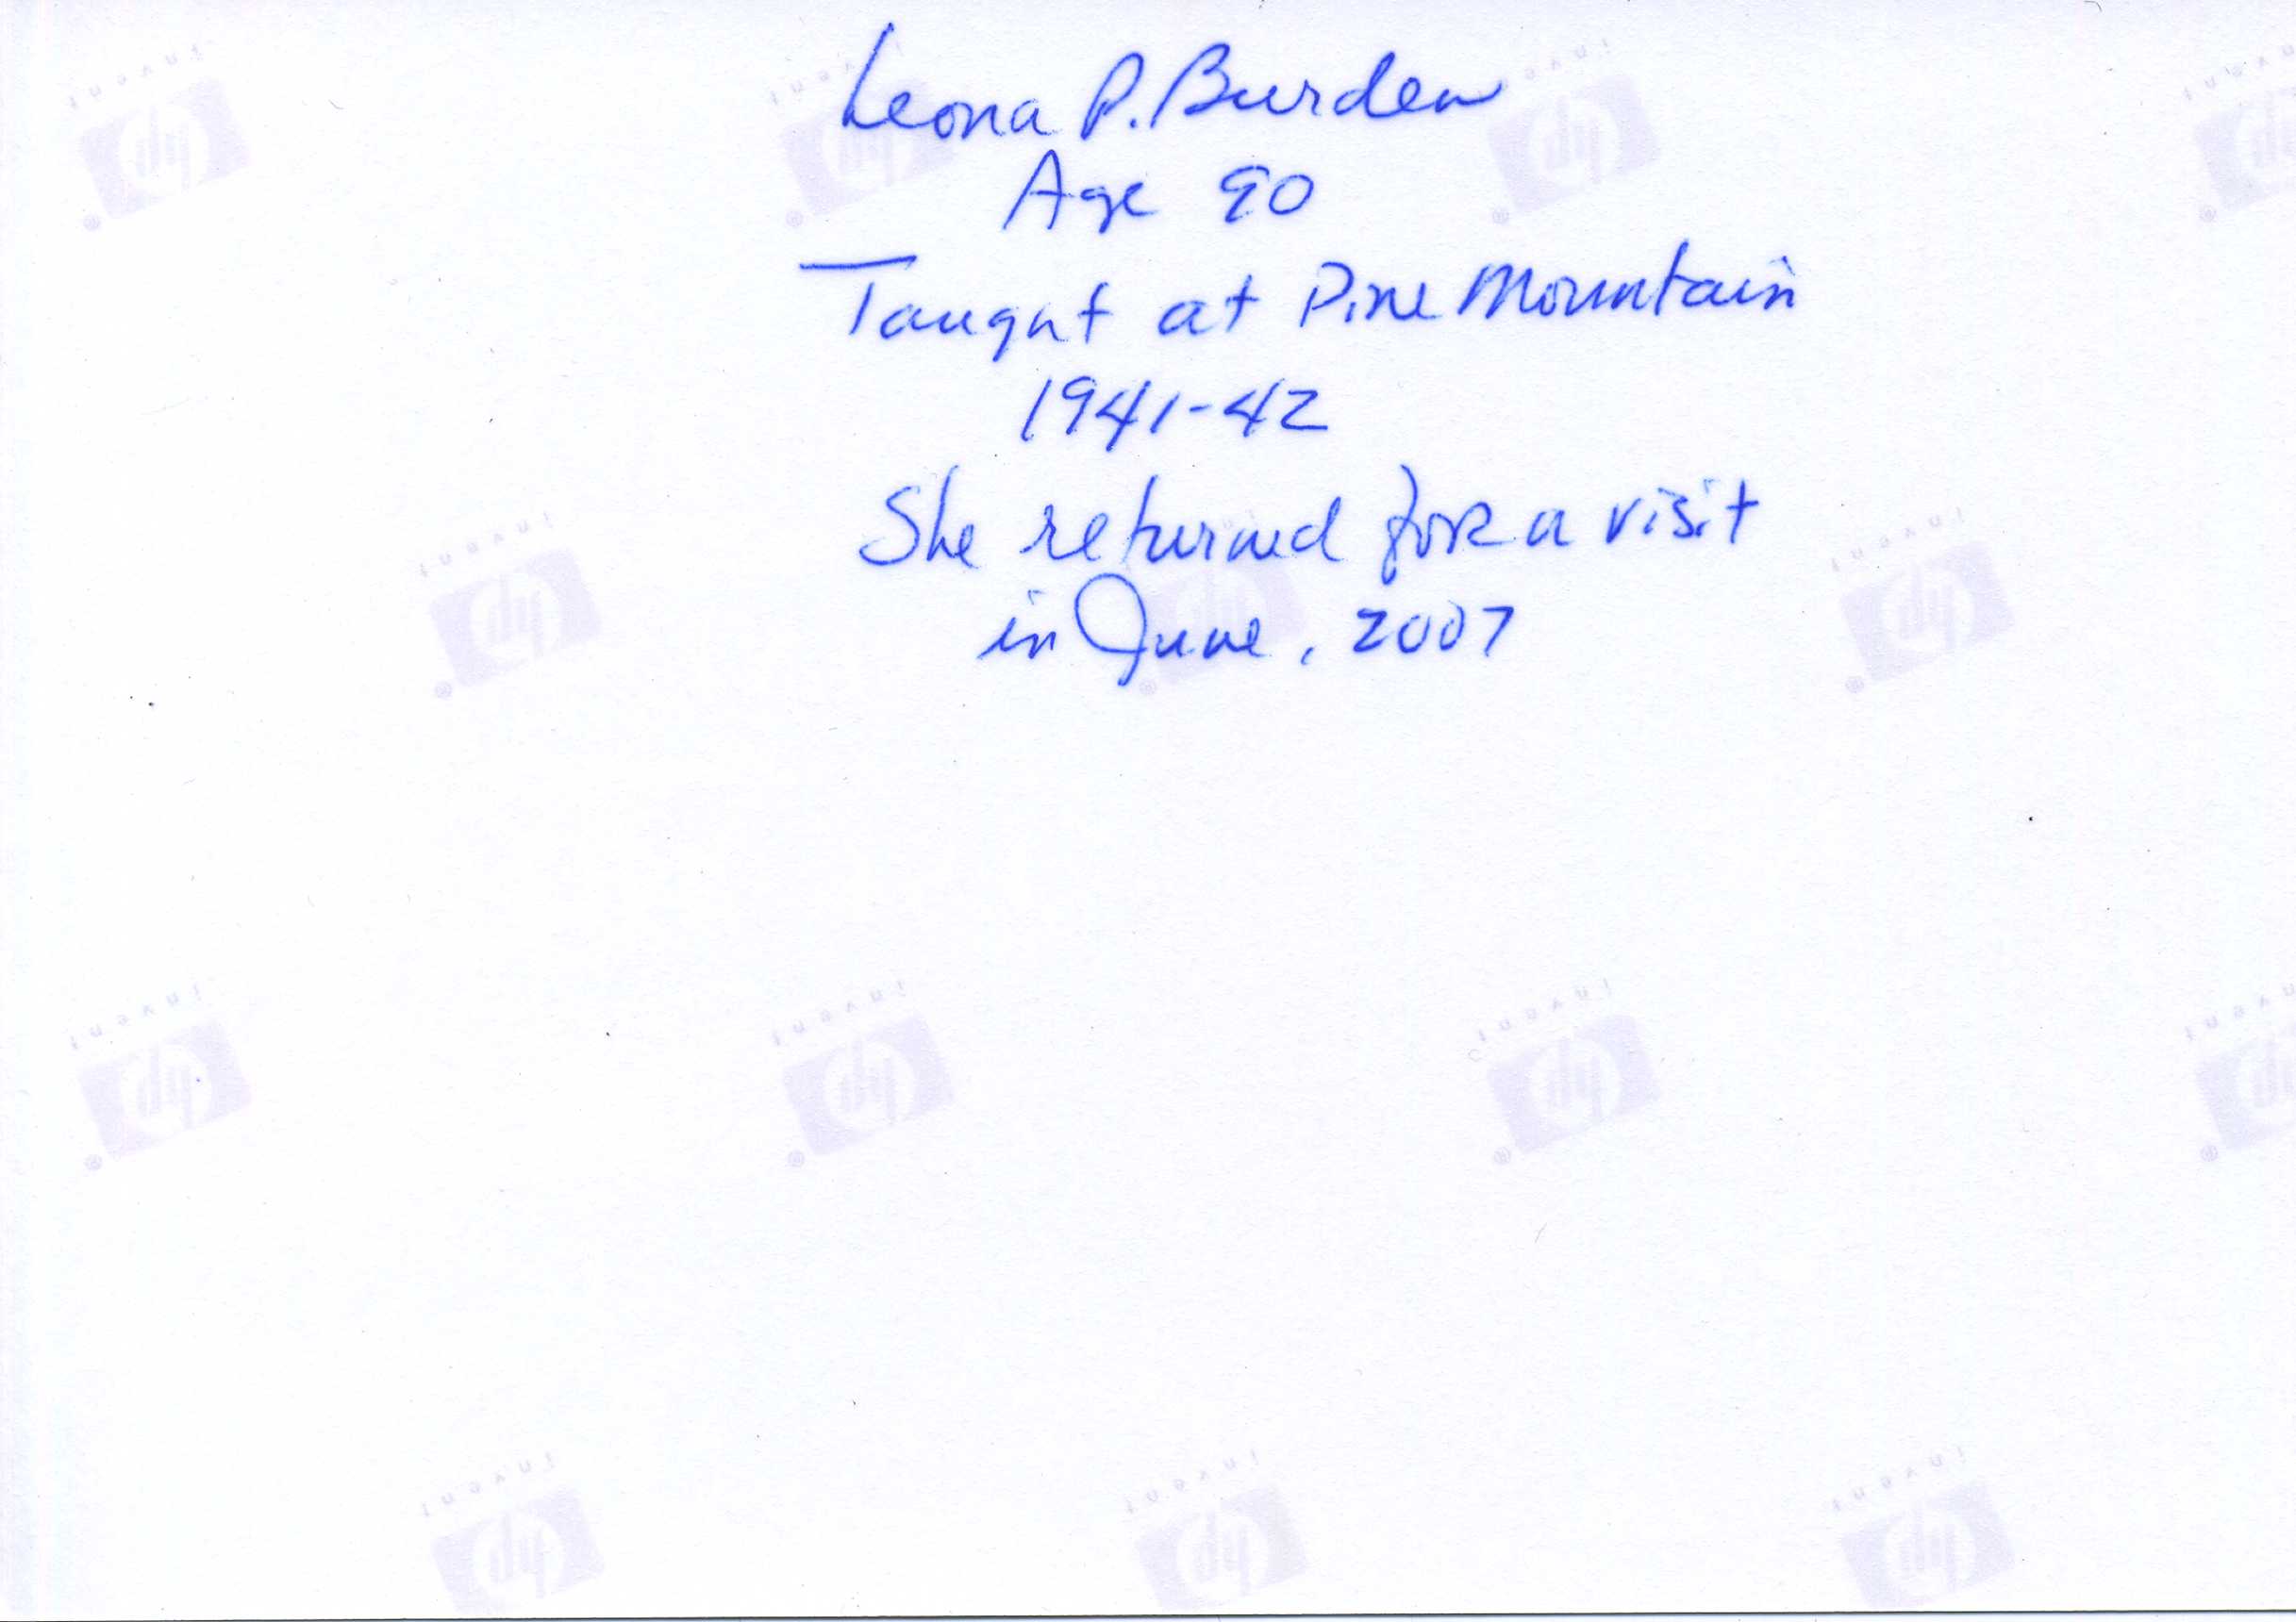 Leona P. Burden
Age 90
Taught at Pine Mountain
1941-42
She returned for a visit
in June, 2007